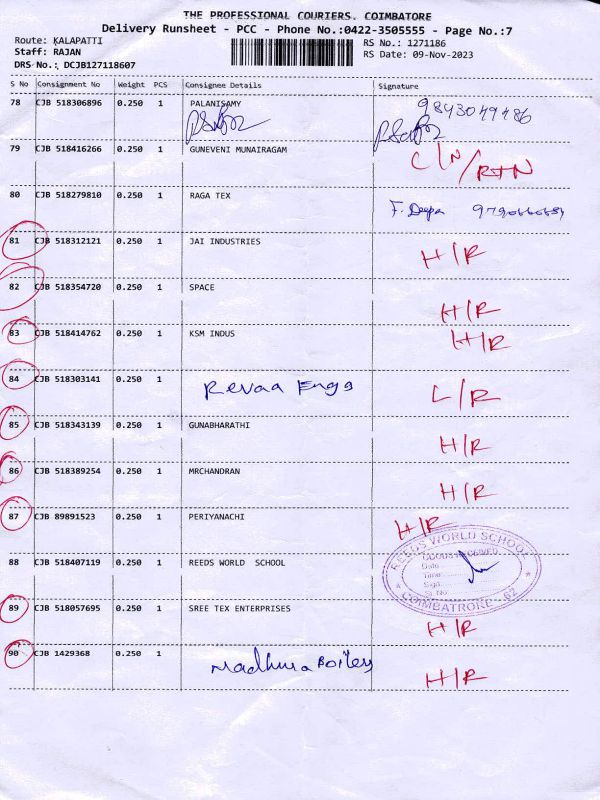 THE PROFESSIONAL COURIERS. COIMBATORE
Delivery Runsheet - PCC - Phone No.:0422-3505555 - Page No.:7
Route: KALAPATTI
RS No.: 1271186
Staff: RAJAN
RS Date: 09-Nov-2023
DRS No.: DCJB127118607
S No Consignment No Weight PCS Consignee Details Signature
78 CJB 518306896 0.250 1 PALANISAMY
79 CJB 518416266 0.250 1 GUNEVENI MUNAIRAGAM C/N/RTN
80 CJB 518279810 0.250 1 RAGA TEX
F. Deepa
81 CJB 518312121 0.250 1 JAI INDUSTRIES H/R
82 CJB 518354720 0.250 1 SPACE H/R
83 CJB 518414762 0.250 1 KSM INDUS H/R
84 CJB 518303141 0.250 1 Revaa Engg L/R
85 CJB 518343139 0.250 1 GUNABHARATHI H/R
86 CJB 518389254 0.250 1 MRCHANDRAN H/R
87 CJB 89891523 0.250 1 PERIYANACHI H/R
88 CJB 518407119 0.250 1 REEDS WORLD SCHOOL
REEDS WORLD SCHOOL
GOODS RECEIVED
Date
Time
Sign
Sl. No
COIMBATRORE - 62
89 CJB 518057695 0.250 1 SREE TEX ENTERPRISES H/R
90 CJB 1429368 0.250 1 Madhura Boilers H/R